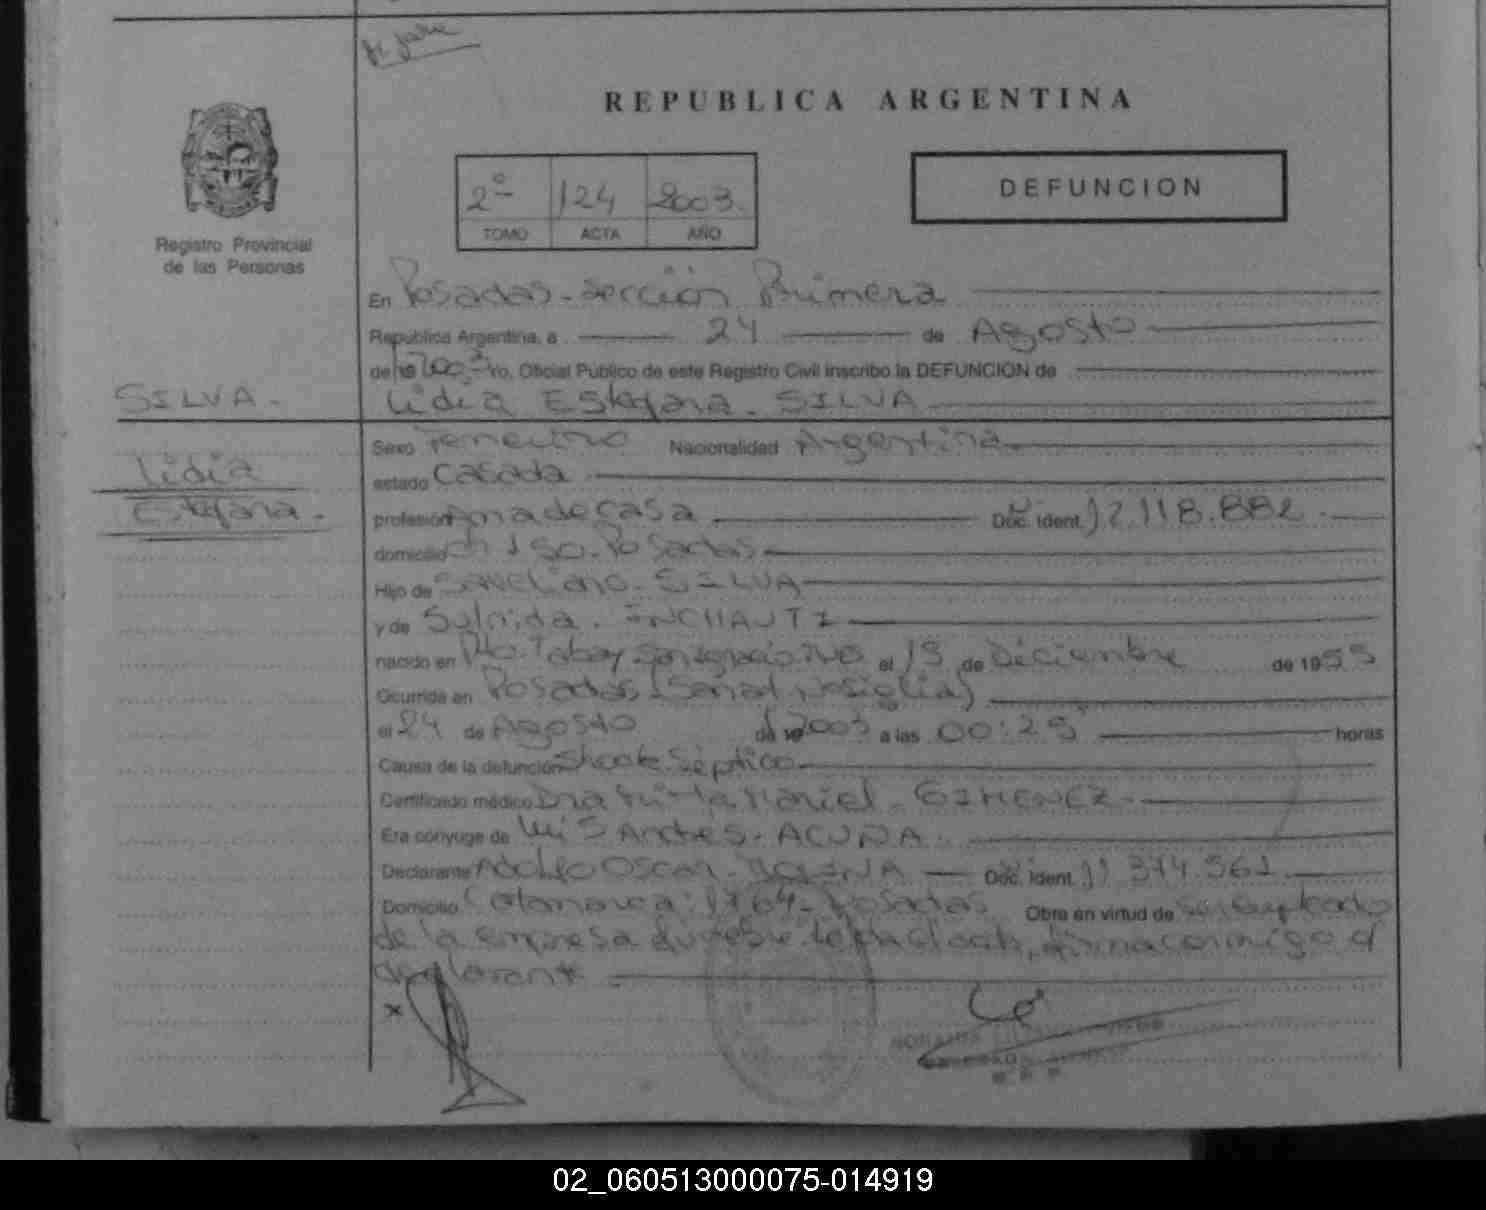 REPUBLICA ARGENTINA
2º 124 2003
TOMO ACTA AÑO
DEFUNCION
Registro Provincial
de las Personas
En Posadas - Sección Primera
República Argentina, a 24 de Agosto
de 2003 Yo, Oficial Público de este Registro Civil inscribo la DEFUNCION de
SILVA.
Lidia Estefana. SILVA
Lidia
Estefana.
Sexo Femenino Nacionalidad Argentina.
estado Casada
profesión Ama de casa Doc. Ident. 12.118.882
domicilio Ch 150. Posadas
Hijo de SILVA
y de INCHAUTI
nacido en Pto. Tabay San Ignacio Mnes el 15 de Diciembre de 1955
Ocurrida en Posadas (Sanat. Nosiglia)
el 24 de Agosto de 2003 a las 00:25 horas
Causa de la defunción Shock Séptico
Certificado médico Dra Mariel. GIMENEZ.
Era cónyuge de Luis Andres. ACUÑA
Declarante Adolfo Oscar. Doc. Ident. 11.374.561
Domicilio Catamarca: 1764 - Posadas Obra en virtud de ser empleado
de la empresa funebre firma conmigo el
declarante
x
02_060513000075-014919